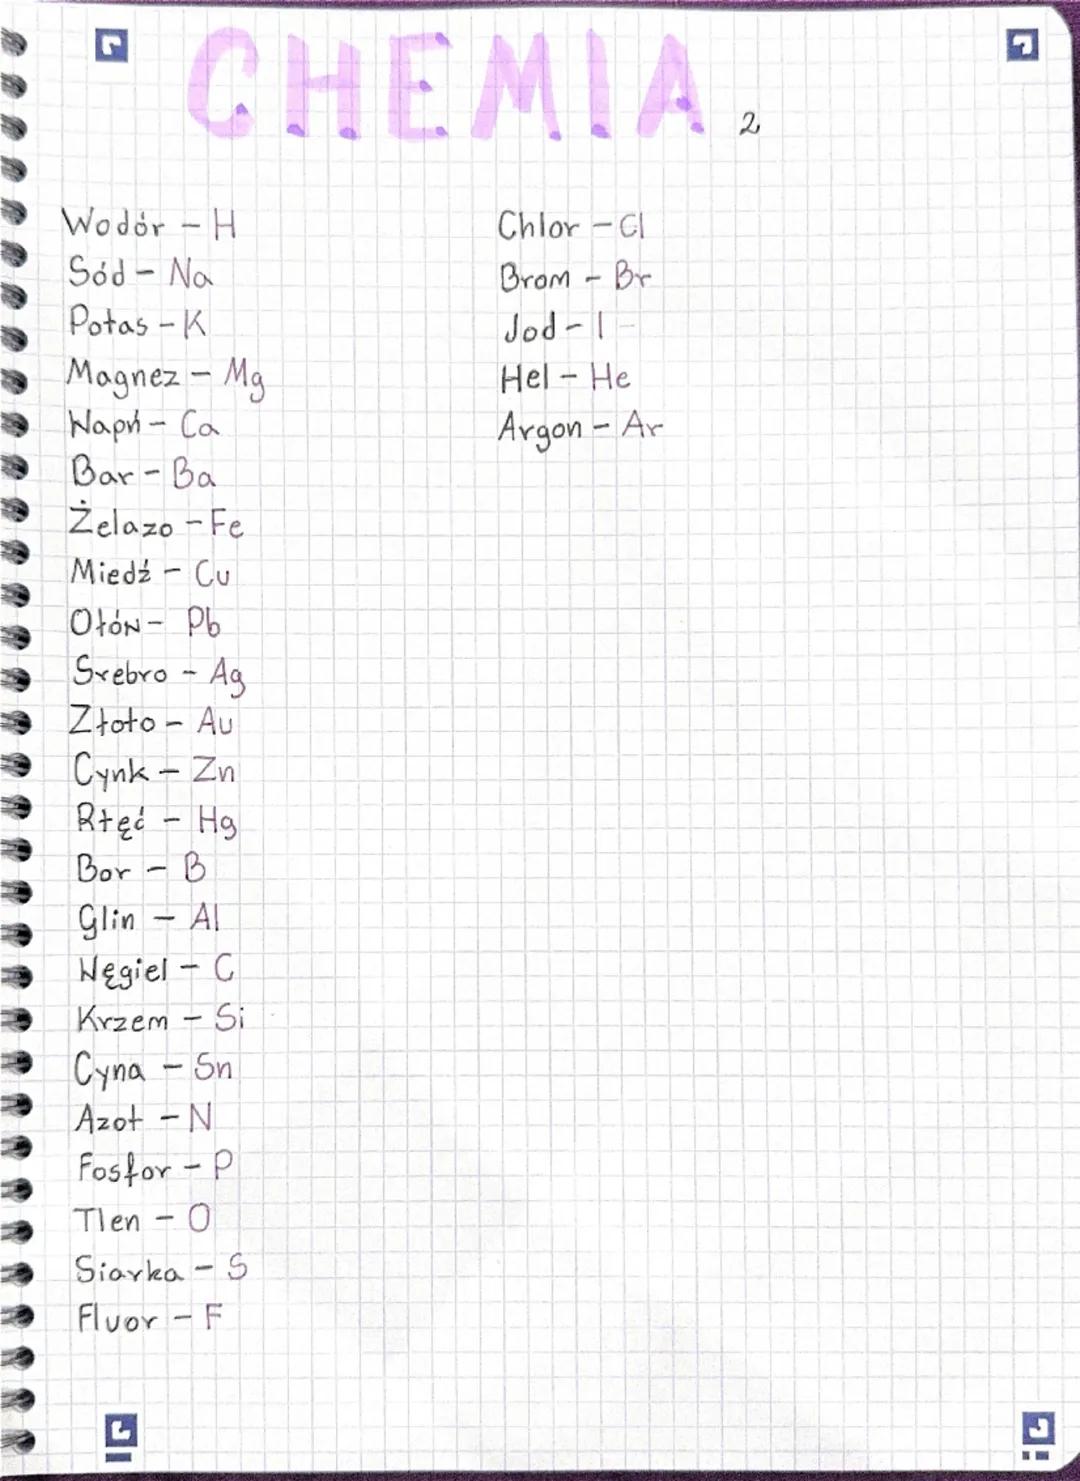 CHEMIA 2
Wodór - H
Sód - Na
Potas - K
Magnez - Mg
Wapń - Ca
Bar - Ba
Żelazo - Fe
Miedź - Cu
Ołów - Pb
Srebro - Ag
Złoto - Au
Cynk - Zn
Rtęć - Hg
Bor - B
Glin - Al
Węgiel - C
Krzem - Si
Cyna - Sn
Azot - N
Fosfor - P
Tlen - O
Siarka - S
Fluor - F
Chlor - Cl
Brom - Br
Jod - I
Hel - He
Argon - Ar